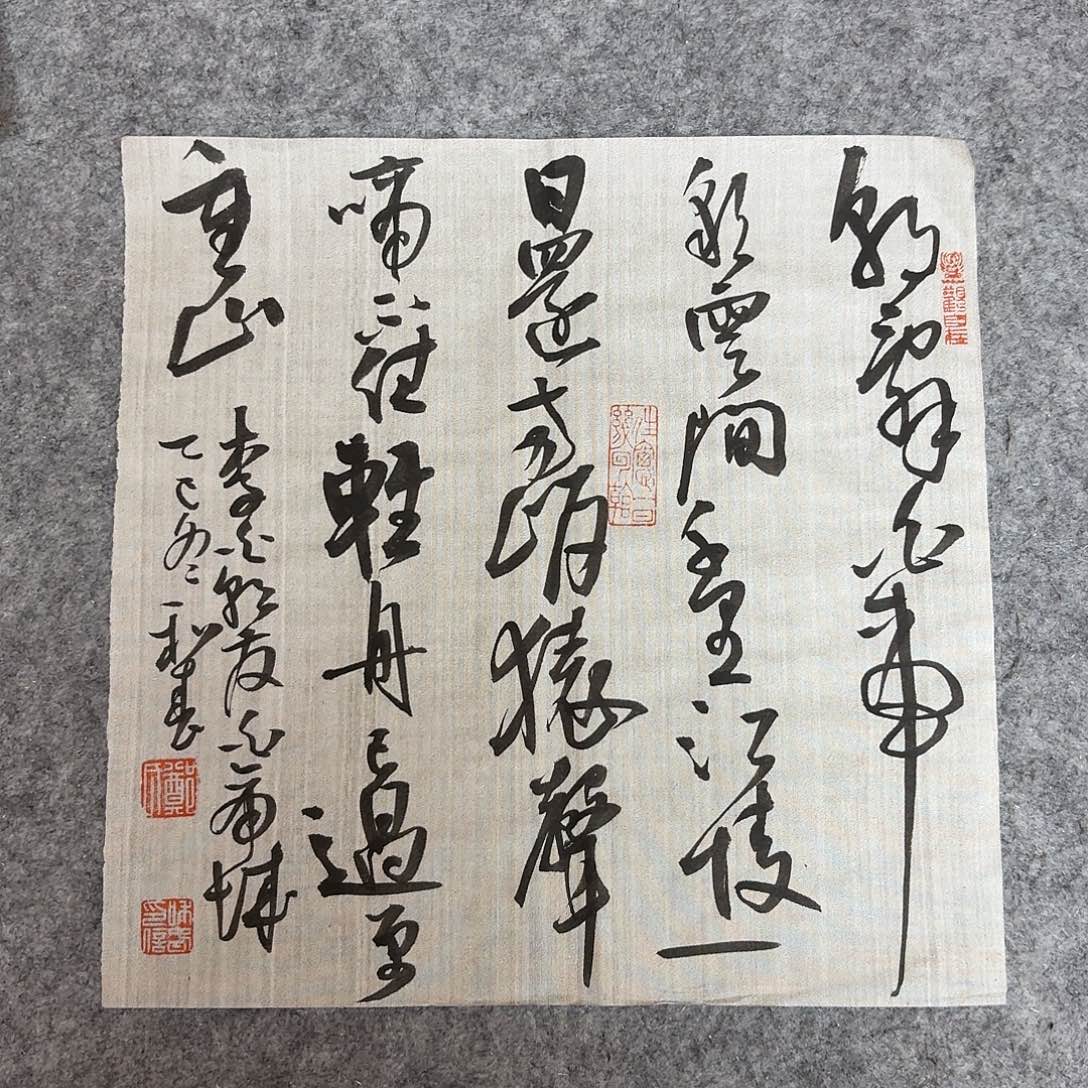 朝辭白帝
彩雲間千里江陵一
日還兩岸猿聲
啼不住輕舟已過萬
重山
李白朝发白帝城
乙巳冬